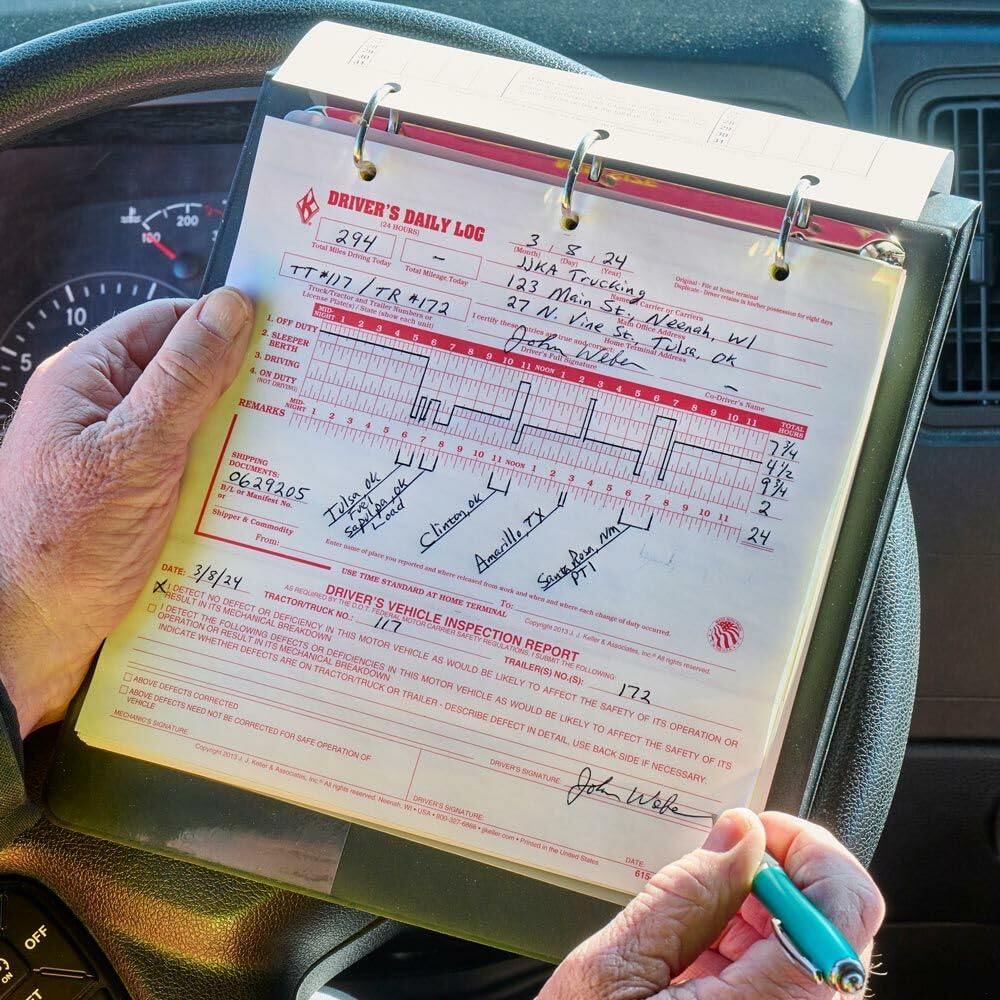 DRIVER'S DAILY LOG
(24 HOURS)
3 8 24
(Month) (Day) (Year)
Original - File at home terminal
Duplicate - Driver retains in his/her possession for eight days
294
Total Miles Driving Today
-
Total Mileage Today
JJKA Trucking
Name of Carrier or Carriers
123 Main St., Neenah, WI
Main Office Address
27 N. Vine St, Tulsa, OK
Home Terminal Address
TT#117 / TR #172
Truck/Tractor and Trailer Numbers or
License Plate(s) / State (show each unit)
I certify these entries are true and correct:
John Weber
Driver's Full Signature
-
Co-Driver's Name
MID-NIGHT 1 2 3 4 5 6 7 8 9 10 11 NOON 1 2 3 4 5 6 7 8 9 10 11 TOTAL HOURS
1. OFF DUTY 7 3/4
2. SLEEPER BERTH 4 1/2
3. DRIVING 9 3/4
4. ON DUTY (NOT DRIVING) 2
MID-NIGHT 1 2 3 4 5 6 7 8 9 10 11 NOON 1 2 3 4 5 6 7 8 9 10 11
24
REMARKS
Tulsa OK
Fuel
Sapulpa, OK
Load
Clinton, OK
Amarillo, TX
Santa Rosa, NM
PTI
SHIPPING
DOCUMENTS:
0629205
B/L or Manifest No.
or
Shipper & Commodity
From:
To:
Enter name of place you reported and where released from work and when and where each change of duty occurred.
USE TIME STANDARD AT HOME TERMINAL
Copyright 2013 J. J. Keller & Associates, Inc.® All rights reserved.
DRIVER'S VEHICLE INSPECTION REPORT
AS REQUIRED BY THE D.O.T. FEDERAL MOTOR CARRIER SAFETY REGULATIONS, I SUBMIT THE FOLLOWING:
DATE: 3/8/24
TRACTOR/TRUCK NO.: 117
TRAILER(S) NO.(S): 172
X I DETECT NO DEFECT OR DEFICIENCY IN THIS MOTOR VEHICLE AS WOULD BE LIKELY TO AFFECT THE SAFETY OF ITS OPERATION OR
RESULT IN ITS MECHANICAL BREAKDOWN
I DETECT THE FOLLOWING DEFECTS OR DEFICIENCIES IN THIS MOTOR VEHICLE AS WOULD BE LIKELY TO AFFECT THE SAFETY OF ITS
OPERATION OR RESULT IN ITS MECHANICAL BREAKDOWN
INDICATE WHETHER DEFECTS ARE ON TRACTOR/TRUCK OR TRAILER - DESCRIBE DEFECT IN DETAIL, USE BACK SIDE IF NECESSARY.
ABOVE DEFECTS CORRECTED
ABOVE DEFECTS NEED NOT BE CORRECTED FOR SAFE OPERATION OF
VEHICLE
MECHANIC'S SIGNATURE
DRIVER'S SIGNATURE
John Weber
DRIVER'S SIGNATURE
DATE
Copyright 2013 J. J. Keller & Associates, Inc.® All rights reserved. Neenah, WI • USA • 800-327-6868 • jjkeller.com • Printed in the United States
615
100 200
5 10
OFF
ON